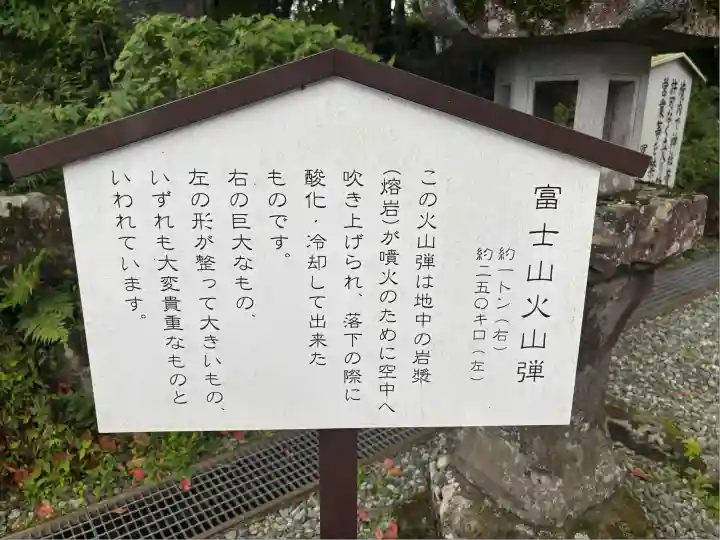 富士山火山弾
約一トン（右）
約二五〇キロ（左）
この火山弾は地中の岩漿
（熔岩）が噴火のために空中へ
吹き上げられ、落下の際に
酸化・冷却して出来た
ものです。
右の巨大なもの、
左の形が整って大きいもの、
いずれも大変貴重なものと
いわれています。